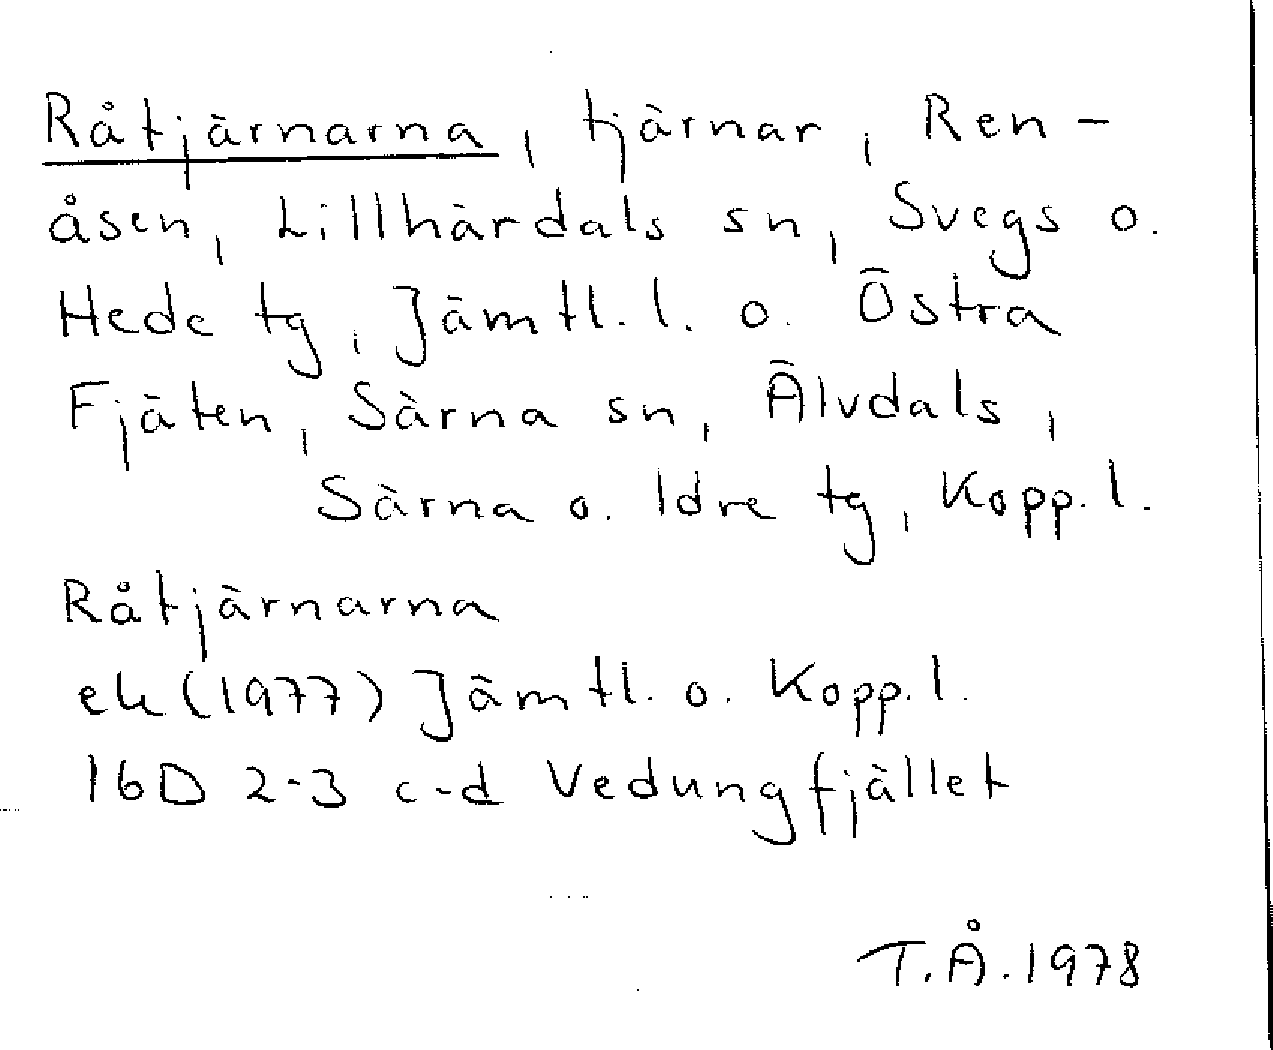 Råtjärnarna, tjärnar, Ren-
åsen, Lillhärdals sn, Svegs o.
Hede tg, Jämtl. l. o. Östra
Fjäten, Särna sn, Älvdals,
Särna o. Idre tg, Kopp. l.
Råtjärnarna
ek (1977) Jämtl. o. Kopp. l.
16D 2-3 c-d Vedungfjället
T.Å. 1978